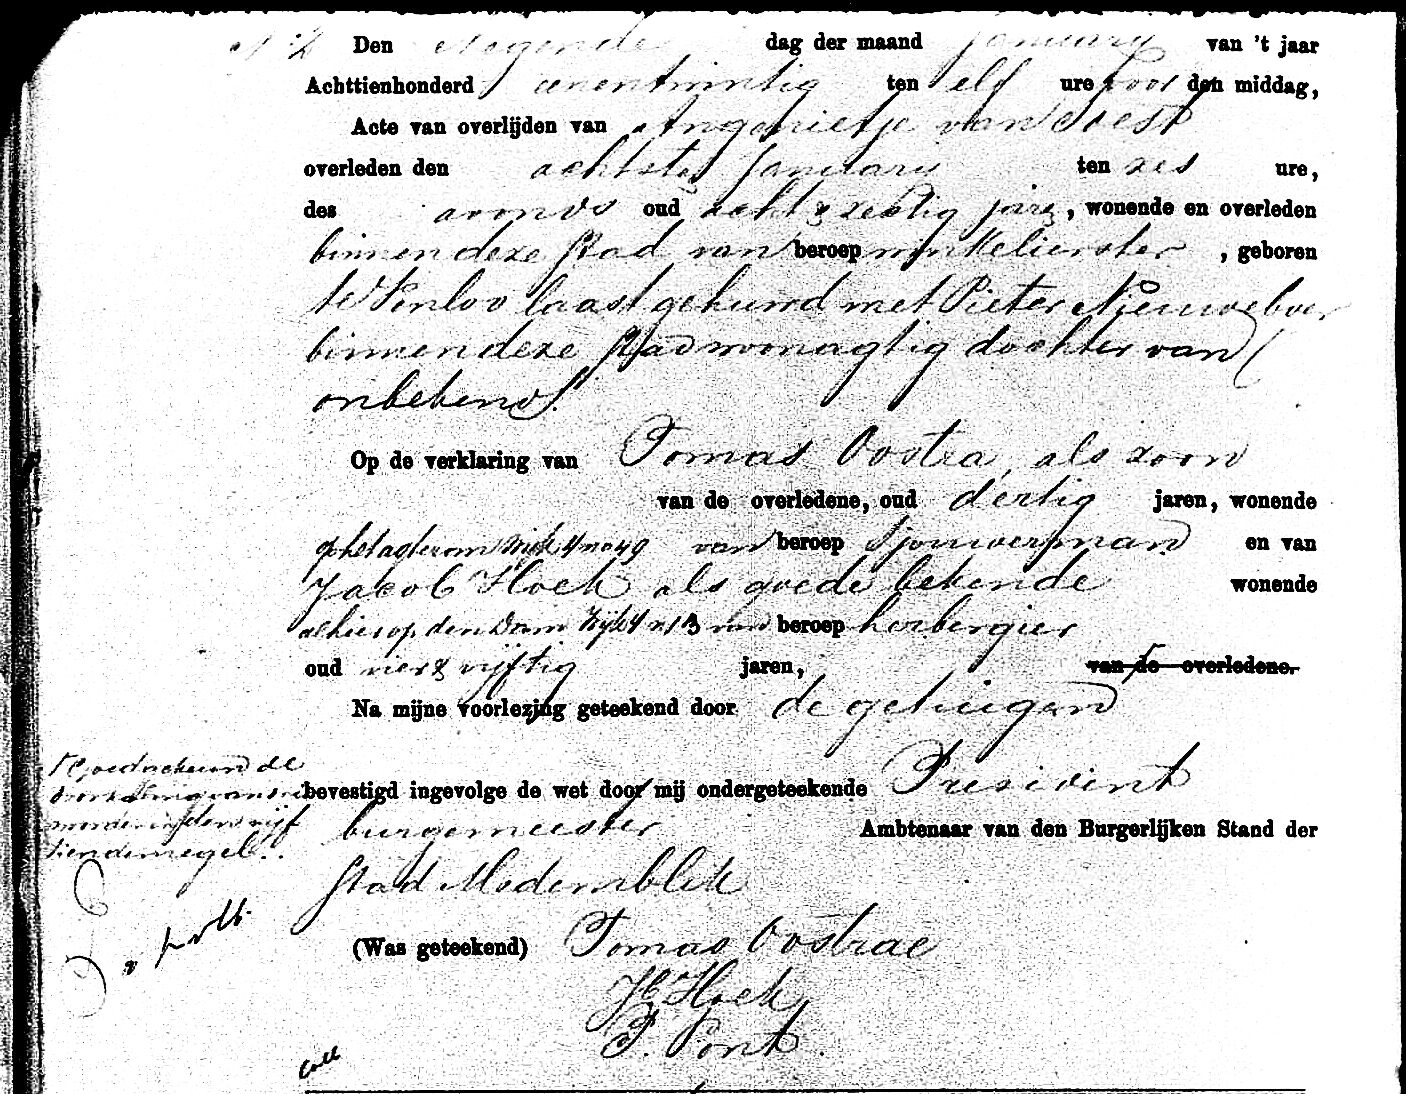 N 2 Den Negende dag der maand January van 't jaar
Achttienhonderd eenentwintig ten elf ure voor den middag,
Acte van overlijden van Angenietje van Soest
overleden den achtste January ten zes ure,
des avonds oud acht & zestig jare, wonende en overleden
binnen deze stad van beroep winkelierster, geboren
te Venloo laast gehuwd met Pieter Nieuweboer
binnen deze stad woonagtig dochter van
onbekend.
Op de verklaring van Tomas Oostra, als zoon
van de overledene, oud dertig jaren, wonende
op het agterom Wijk 4 no 49 van beroep Sjouwerman en van
Jacob Hoek als goede bekende wonende
alhier op den Dam Wijk 4 n 13 van beroep herbergier
oud vier & vijftig jaren, van de overledene.
Na mijne voorlezing geteekend door de getuigen
bevestigd ingevolge de wet door mij ondergeteekende President
burgemeester Ambtenaar van den Burgerlijken Stand der
Stad Medemblik
(Was geteekend) Tomas Oostrae
Jb Hoek
P. Pont.
Goedgekeurd de
doorhaling van drie
woorden in den vijf
tiende regel.
Coll